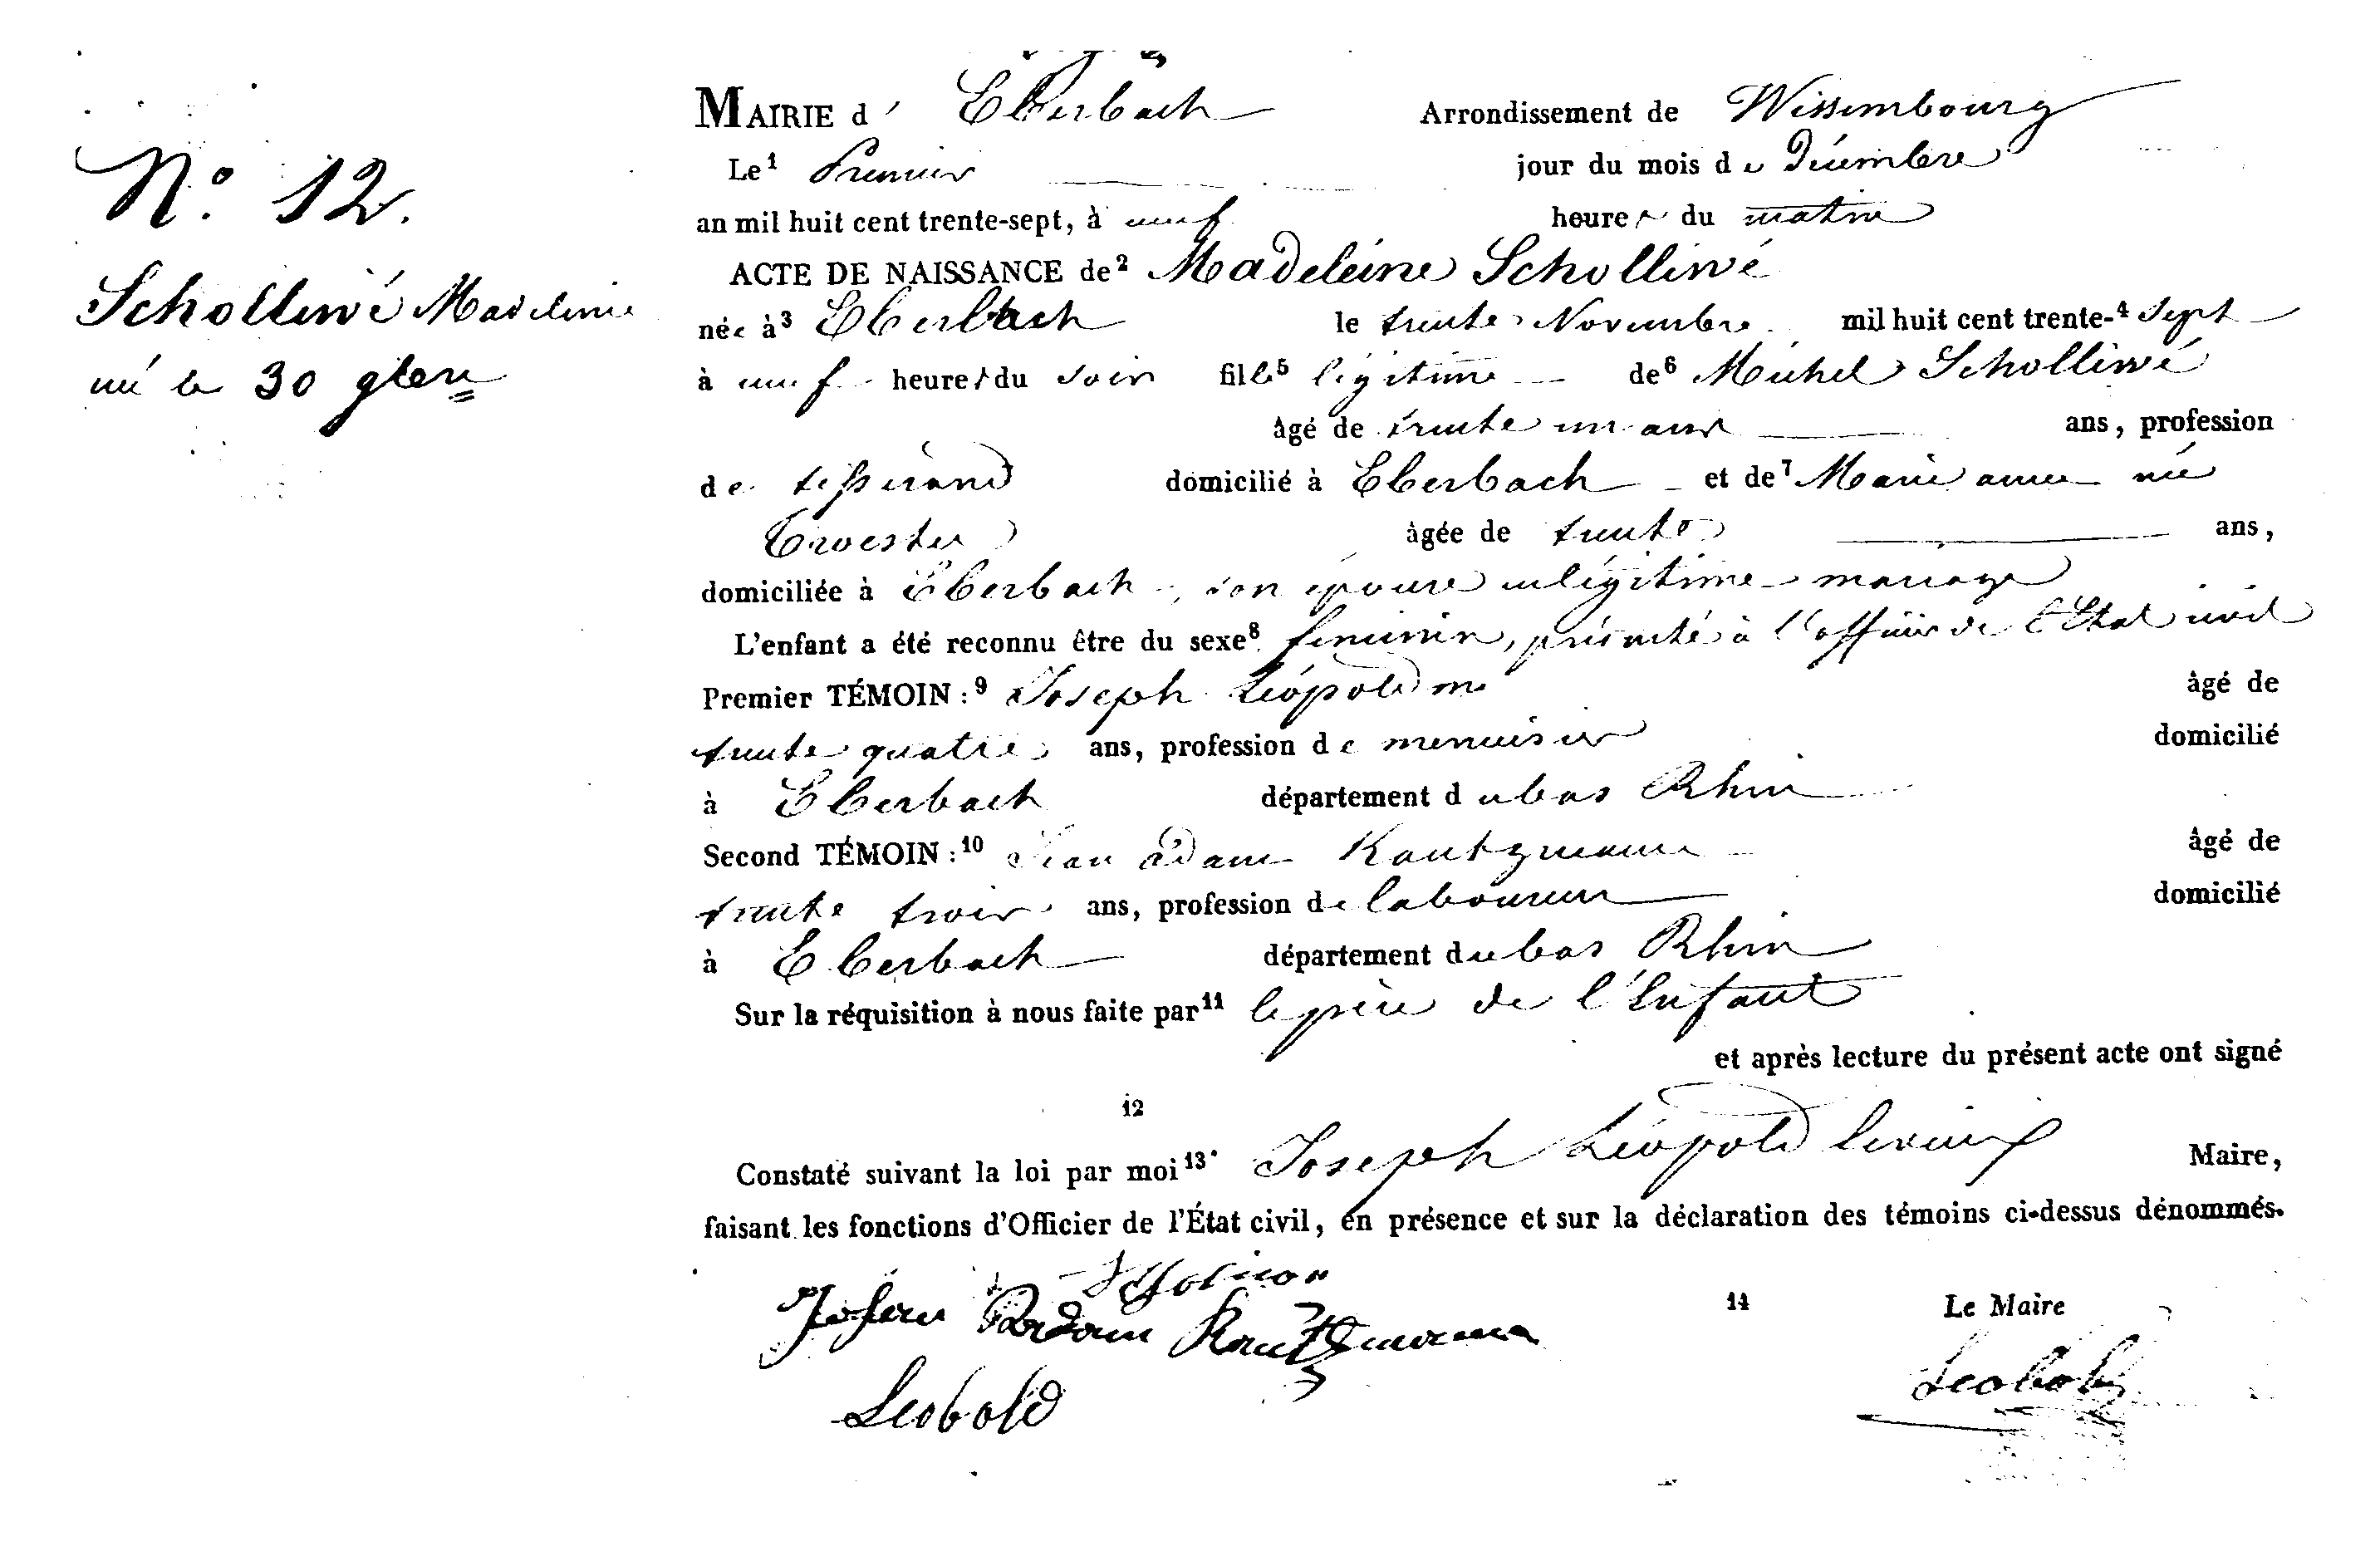 N.o 12.
Schollivé Madeleine
née le 30 9bre
MAIRIE d' Eberbach Arrondissement de Wissembourg
Le1 Premier jour du mois de Décembre
an mil huit cent trente-sept, à neuf heures du matin
ACTE DE NAISSANCE de2 Madeleine Schollivé
née à3 Eberbach le trente Novembre mil huit cent trente-4 Sept
à neuf heures du soir fille5 légitime de6 Michel Schollivé
âgé de trente un ans ans, profession
de tisserand domicilié à Eberbach et de7 Marie anne née
Troester âgée de trente ans,
domiciliée à Eberbach, son épouse en légitime mariage
L'enfant a été reconnu être du sexe8 feminin, présenté à l'officier de l'Etat civil
Premier TÉMOIN :9 Joseph Léopold âgé de
trente quatre ans, profession de menuisier domicilié
à Eberbach département du bas Rhin
Second TÉMOIN :10 Jean adam Kautzmann âgé de
trente trois ans, profession de laboureur domicilié
à Eberbach département du bas Rhin
Sur la réquisition à nous faite par11 le père de l'Enfant
et après lecture du présent acte ont signé
12
Constaté suivant la loi par moi13 Joseph Léopold le vieux Maire,
faisant les fonctions d'Officier de l'État civil, en présence et sur la déclaration des témoins ci-dessus dénommés.
Johan Adam Kautzmann
14 Le Maire
Leobold Leobold